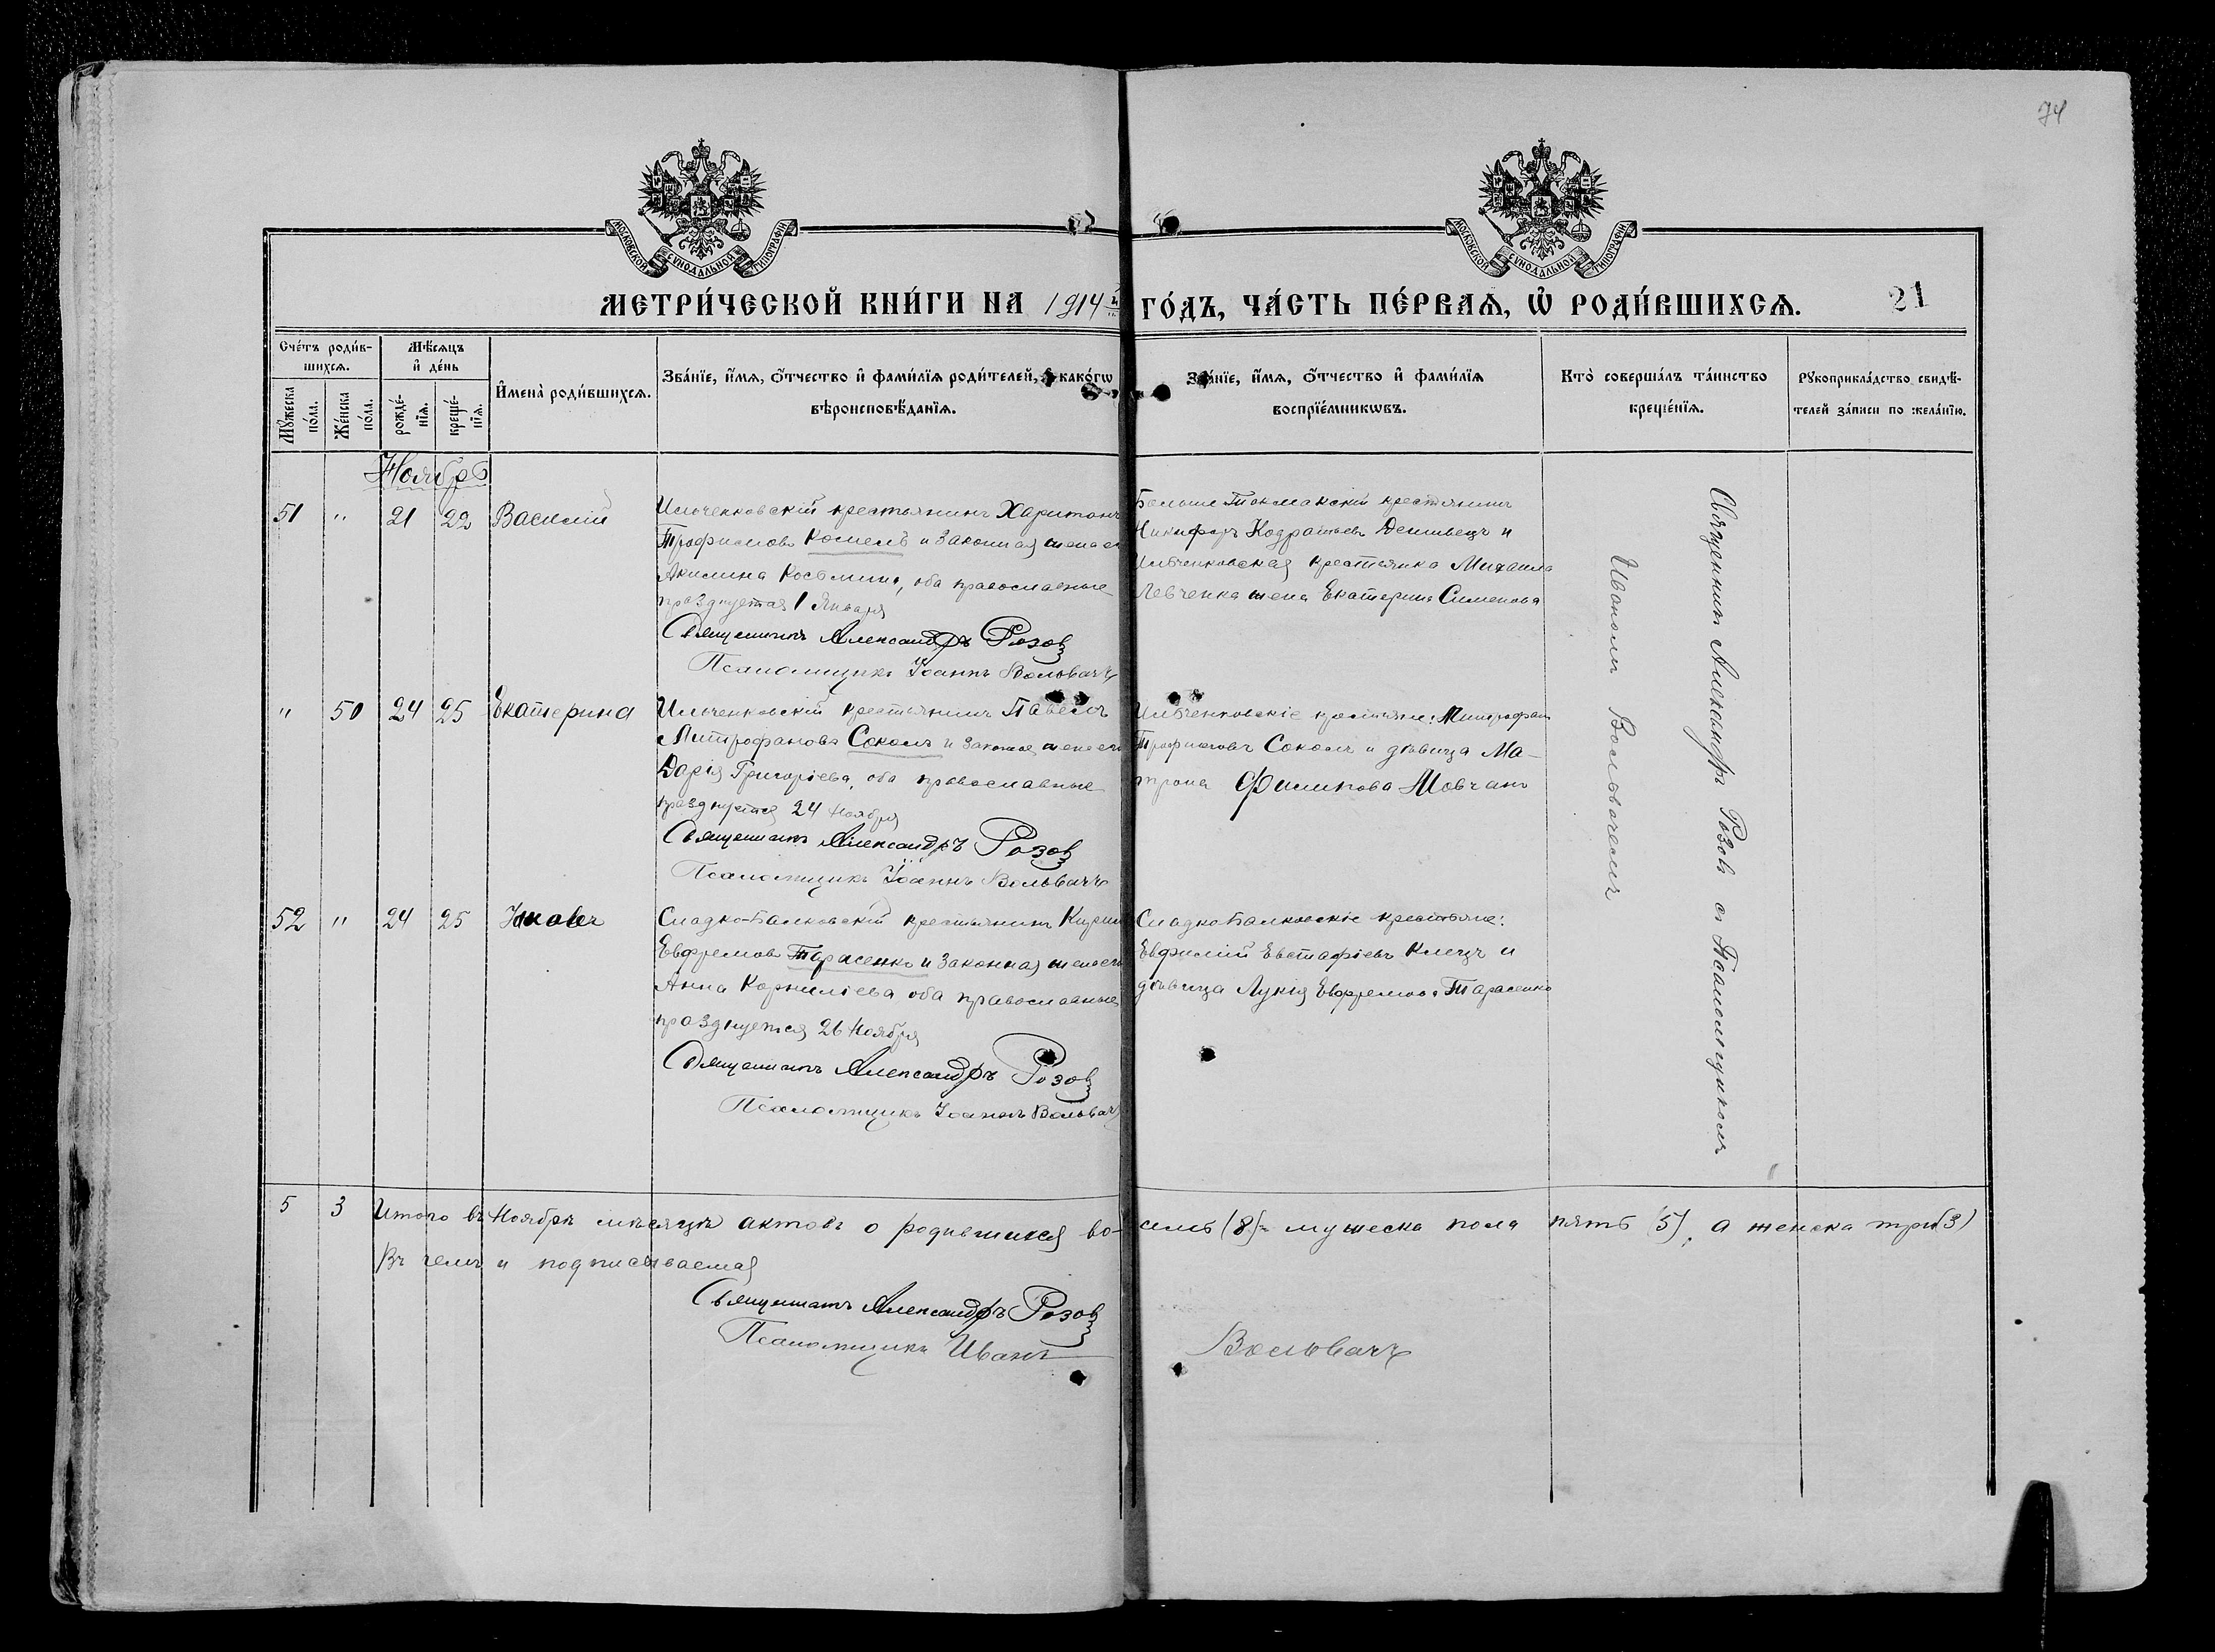 74
МОСКОВСКОЙ СУНОДАЛЬНОЙ ТИПОГРАФІИ
МОСКОВСКОЙ СУНОДАЛЬНОЙ ТИПОГРАФІИ
МЕТРИ́ЧЕСКОЙ КНИ́ГИ НА 1914й ГО́ДЪ, ЧА́СТЬ ПЕ́РВАЯ, Ѽ РОДИ́ВШИХСЯ. 21
Сче́тъ роди́вшихся.
Мꙋ́жеска по́ла.
Же́нска по́ла.
Мѣ́сяцъ и҆ де́нь
рожде́нїя.
креще́нїя.
И҆мена̀ роди́вшихся.
Зва́нїе, и҆́мя, ѻ҆́тчество и҆ фами́лїя роди́телей, и҆ како́гѡ
вѣроисповѣ́данїя.
Зва́нїе, и҆́мя, ѻ҆́тчество и҆ фами́лїя
воспрїе́мникѡвъ.
Кто̀ соверша́лъ та́инство
креще́нїя.
Рꙋкоприкла́дство свидѣ́-
телей за́писи по жела́нїю.
Ноябрь
51 " 21 22 Василій
Ильченковскій крестьянинъ Харитонъ
Трофимовъ Комель и законная жена его
Акилина Косьмина, оба православные
празднуется 1 Января
Священникъ Александръ Розов
Псаломщикъ Іоаннъ Вольвачъ
Больше Токмакскій крестьянинъ
Никифоръ Кодратьевъ Дешивецъ и
Ильченковская крестьянка Михаила
Левченка жена Екатерина Сименова
" 50 24 25 Екатерина
Ильченковскій крестьянинъ Павелъ
Митрофановъ Соколъ и законная жена его
Дарія Григоріева, оба православные
празднуется 24 Ноября
Священникъ Александръ Розов
Псаломщикъ Іоаннъ Вольвачъ
Ильченковскіе крестьяне: Митрофанъ
Трофимовъ Соколъ и дѣвица Ма-
трона Филипова Мовчанъ
52 " 24 25 Іаковъ
Сладко-Балковскій крестьянинъ Кирилъ
Евфремовъ Тарасенко и законная жена его
Анна Корниліева оба православные
празднуется 26 Ноября
Священникъ Александръ Розов
Псаломщикъ Іоаннъ Вольвачъ
Сладко-Балковскіе крестьяне:
Евфимій Евстафіевъ Клецъ и
дѣвица Лукія Евфремова Тарасенко
Священникъ Александръ Розовъ съ Псаломщикомъ
Иваномъ Вольвачемъ
5 3 Итого въ Ноябрѣ мѣсяцѣ актовъ о родившихся во-семь (8): мужеска пола пять (5), а женска три (3)
Въ чемъ и подписываемся
Священникъ Александръ Розов
Псаломщикъ Иванъ Вольвачъ